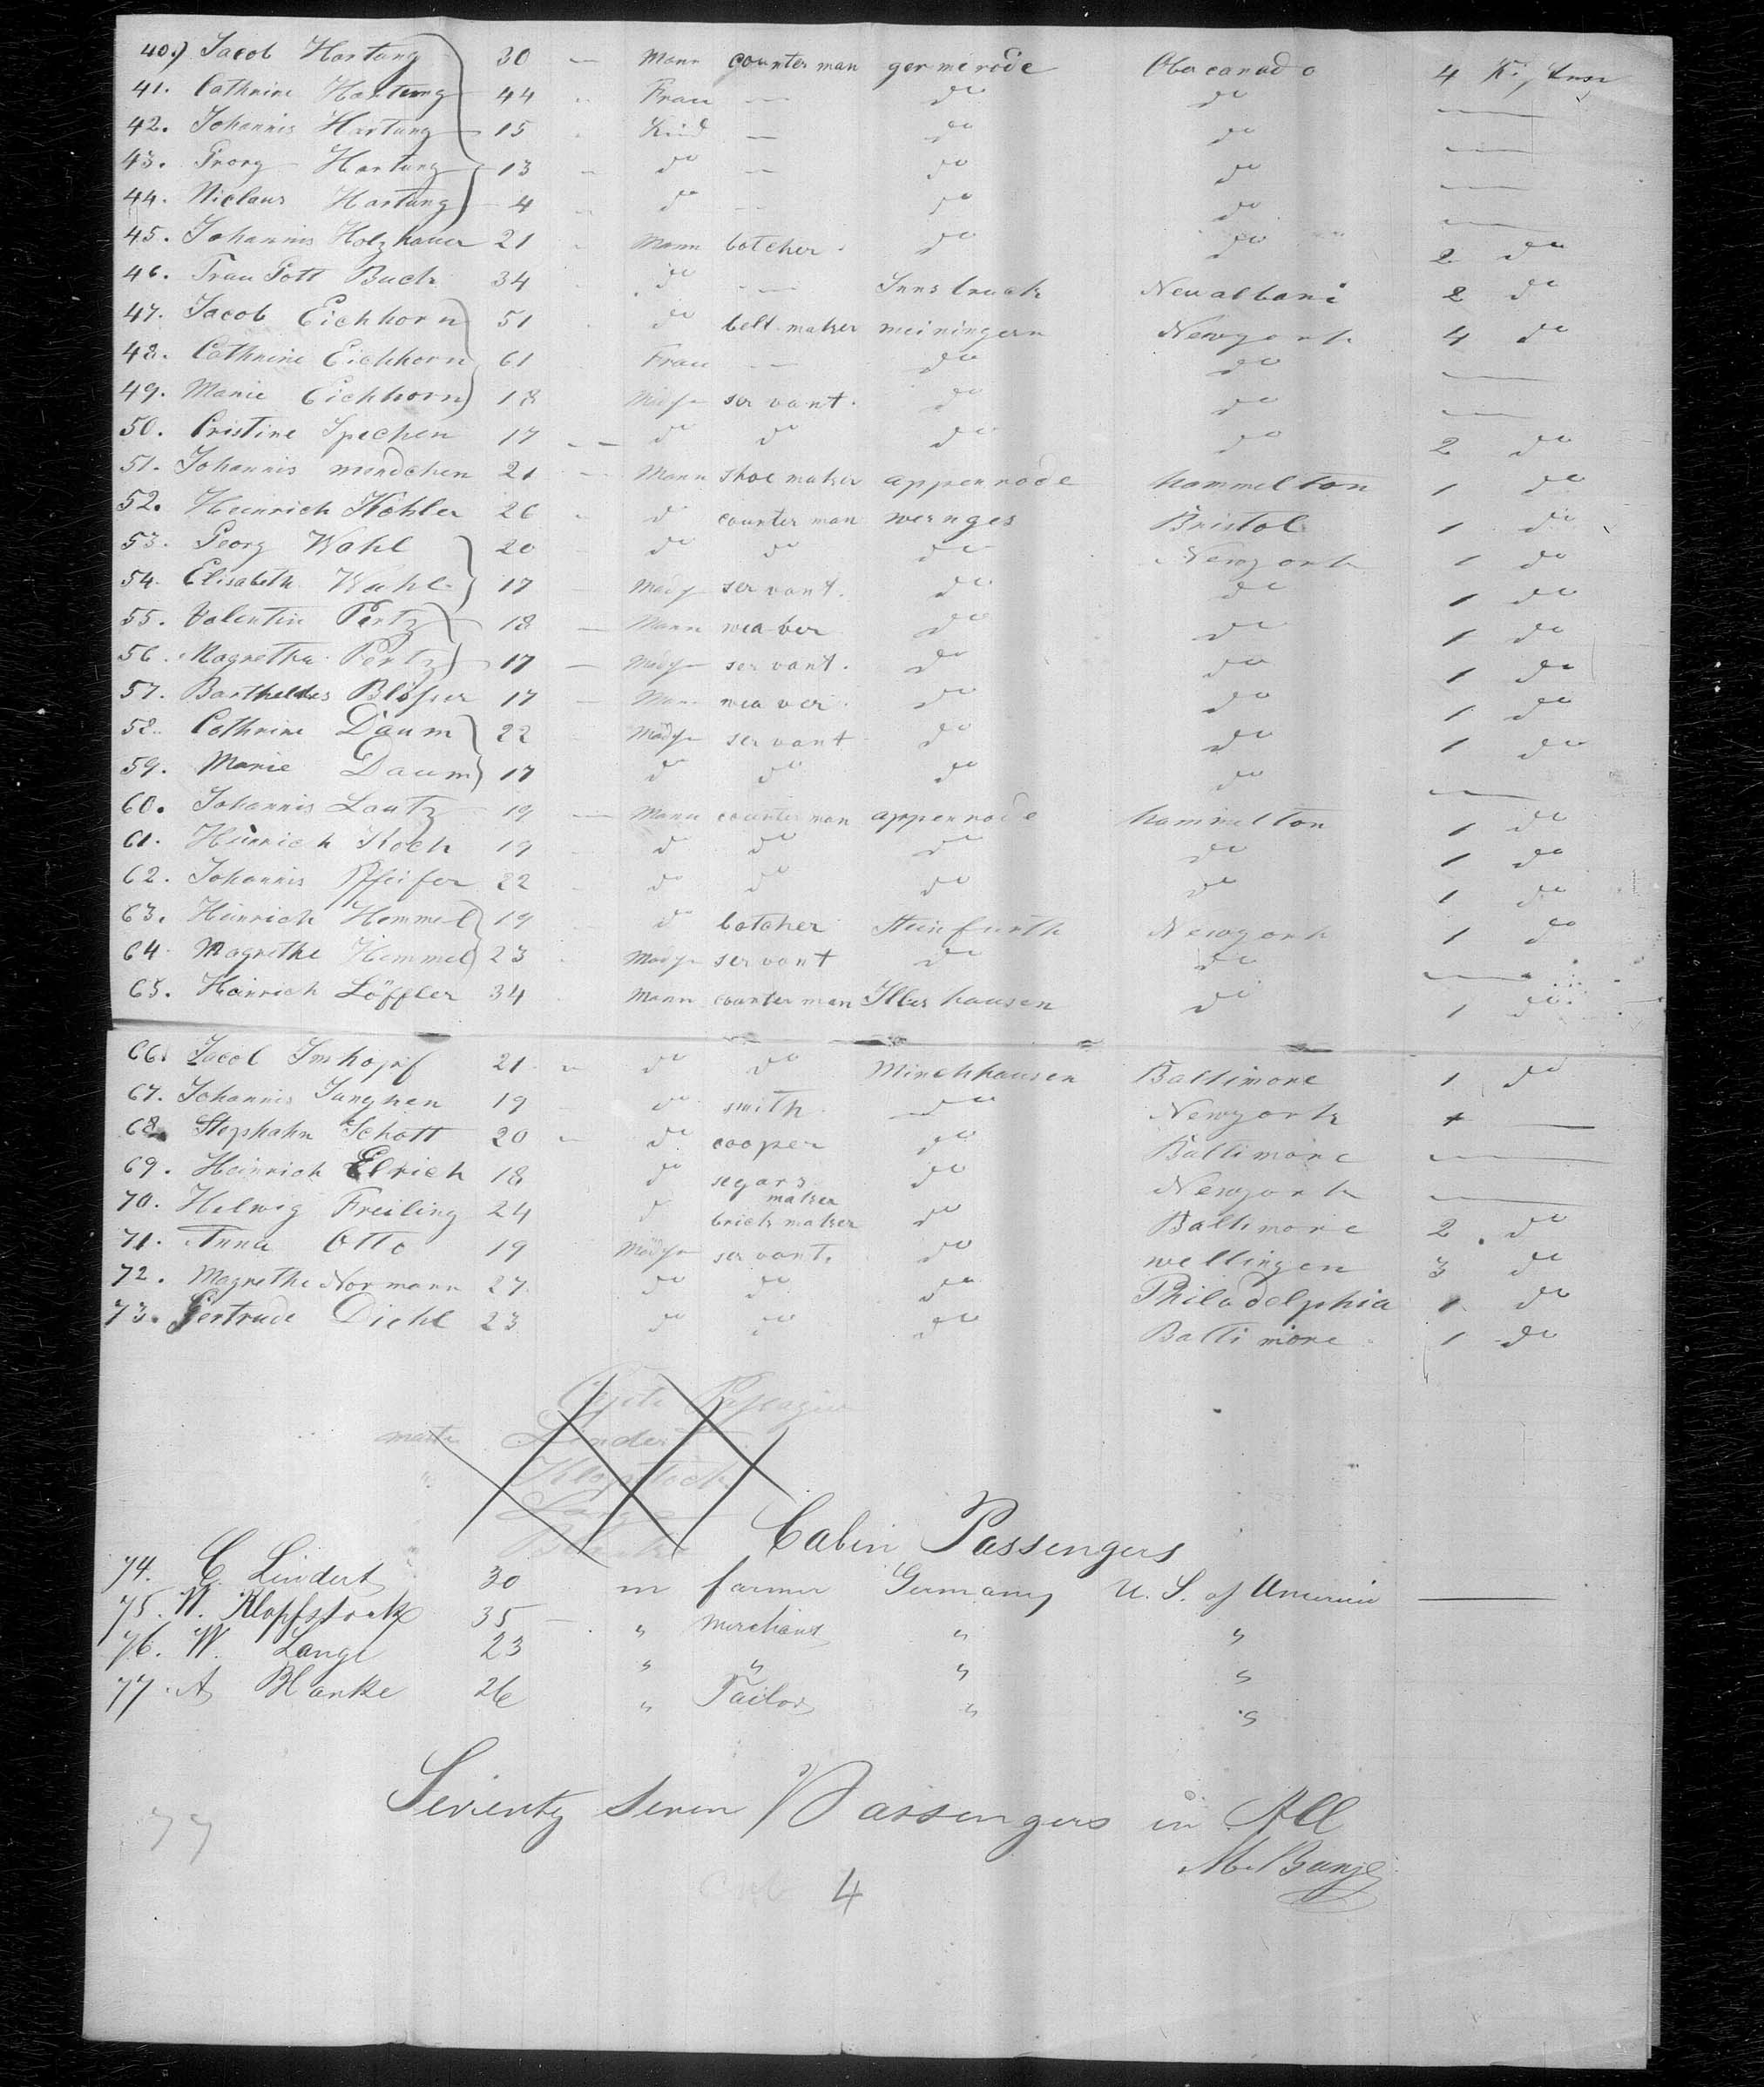 40.) Jacob Hartung 30 — Mann counter man germerode Obercanado 4
41. Cathrine Hartung 44 " Frau — do do —
42. Johannis Hartung 15 Kind — do do —
43. Georg Hartung 13 do — do do —
44. Niclaus Hartung 4 do — do do —
45. Johannis Holzhauer 21 Mann botcher do do 2 do
46. Traugott Buch 34 do — Innsbruck Neualbani 2 do
47. Jacob Eichhorn 51 do belt maker meiningern Newyork 4 do
48. Cathrine Eichhorn 61 Frau — do do —
49. Marie Eichhorn 18 servant. do do —
50. Cristine Spechen 17 — do do do do 2 do
51. Johannis mendchen 21 — Mann shoe maker appenrode hammelton 1 do
52. Heinrich Kohler 26 do counter man wernges Bristol 1 do
53. Georg Wahl 20 do do do Newyork 1 do
54. Elisabeth Wahl 17 servant. do do 1 do
55. Valentin Pertz 18 — Mann weaber do do 1 do
56. Magretha Pertz 17 — servant. do do 1 do
57. Bartheldes Blößer 17 — Mann weaver do do 1 do
58. Cathrine Daum 22 servant do do 1 do
59. Marie Daum 17 do do do do —
60. Johannis Lautz 19 — Mann counter man appenrode hammelton 1 do
61. Heinrich Koch 19 do do do do 1 do
62. Johannis Pfeifer 22 do do do do 1 do
63. Heinrich Hemmel 19 do botcher Steinfurth Newyork 1 do
64. Magrethe Hemmel 23 servant do do —
65. Heinrich Löffler 34 Mann counter man Illershausen do 1 do
66. Jacob Imhopf 21 " do do Minchhausen Baltimore 1 do
67. Johannis Junghen 19 do smith do Newyork —
68. Stephahn Schott 20 " do cooper do Baltimore —
69. Heinrich Elrich 18 do segars maker do Newyork —
70. Helwig Freiling 24 do brick maker do Baltimore 2 do
71. Anna Otto 19 servant. do wellingen 3 do
72. Magrethe Normann 27 do do do Philadelphia 1 do
73. Gertrude Diehl 23 do do do Baltimore 1 do
Lindert
Klopstock
Cabin Passengers
74. C. Lindert 30 m farmer Germany U. S. of America —
75. W. Klopfstock 35 — " Merchant " "
76. W. Lange 23 " " " "
77. A Hanke 26 " Tailor " "
Seventy Seven Passengers in All
77
M. Bunje
4